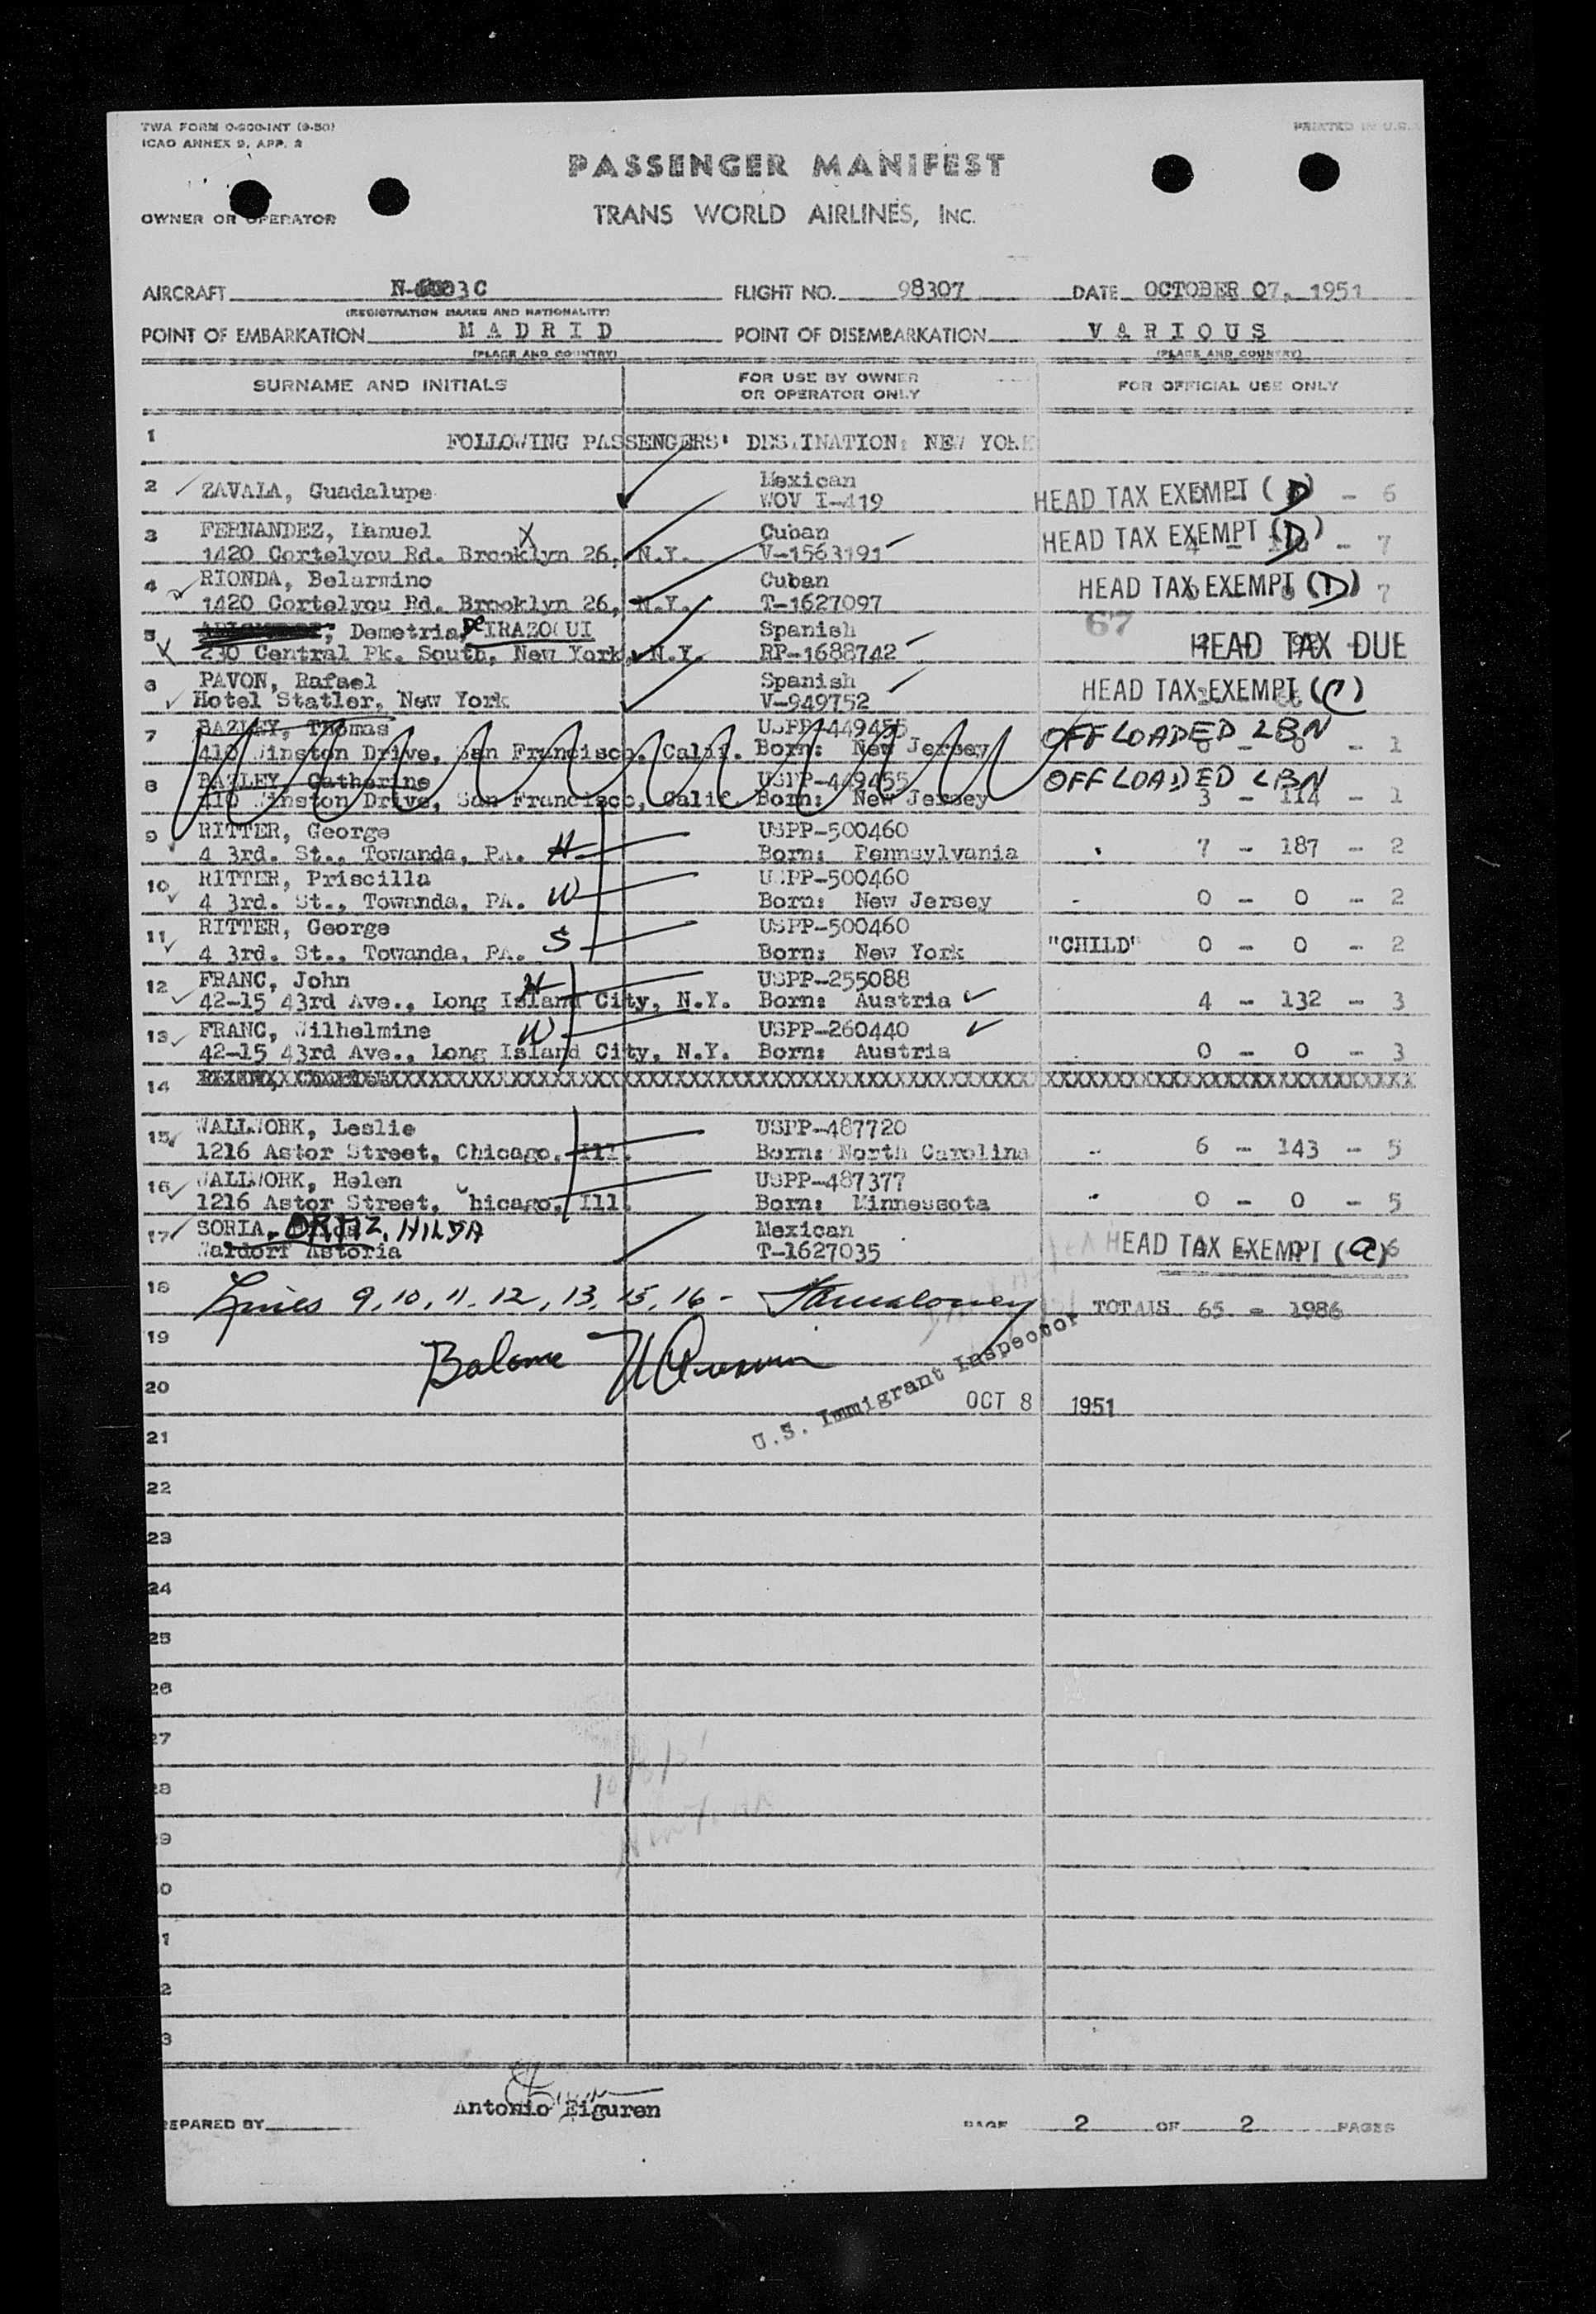 TWA FORM O-200-INT (9-50)
PRINTED IN U.S.
ICAO ANNEX 9, APP. 2
PASSENGER MANIFEST
OWNER OR OPERATOR
TRANS WORLD AIRLINES, INC.
AIRCRAFT 03C FLIGHT NO. 98307 DATE OCTOBER 07, 1951
(REGISTRATION MARKS AND NATIONALITY)
POINT OF EMBARKATION M A D R I D POINT OF DISEMBARKATION V A R I O U S
(PLACE AND COUNTRY) (PLACE AND COUNTRY)
SURNAME AND INITIALS FOR USE BY OWNER OR OPERATOR ONLY FOR OFFICIAL USE ONLY
1 FOLLOWING PASSENGERS' DESTINATION: NEW YORK
2 ZAVALA, Guadalupe Mexican HEAD TAX EXEMPT (D) - 6
WOV I-419
3 FERNANDEZ, Manuel X Cuban HEAD TAX EXEMPT (D) - 7
1420 Cortelyou Rd. Brooklyn 26, N.Y. V-1563191
4 RIONDA, Belarmino Cuban HEAD TAX EXEMPT (D) 7
1420 Cortelyou Rd. Brooklyn 26, N.Y. T-1627097
5 Demetria, De IRAZOQUI Spanish 67 HEAD TAX DUE
230 Central Pk. South, New York, N.Y. RP-1688742
6 PAVON, Rafael Spanish HEAD TAX EXEMPT (C)
Hotel Statler, New York V-949752
7 BAZLEY, Thomas USPP-449455 OFFLOADED LBN
410 Winston Drive, San Francisco, Calif. Born: New Jersey - 1
8 BAZLEY, Catherine USPP-449455 OFFLOADED LBN
410 Winston Drive, San Francisco, Calif. Born: New Jersey 3 - 114 - 1
9 RITTER, George USPP-500460
4 3rd. St., Towanda, PA. H Born: Pennsylvania 7 - 187 - 2
10 RITTER, Priscilla USPP-500460
4 3rd. St., Towanda, PA. W Born: New Jersey 0 - 0 - 2
11 RITTER, George USPP-500460
4 3rd. St., Towanda, PA. S Born: New York "CHILD" 0 - 0 - 2
12 FRANC, John H USPP-255088
42-15 43rd Ave., Long Island City, N.Y. Born: Austria 4 - 132 - 3
13 FRANC, Wilhelmine W USPP-260440
42-15 43rd Ave., Long Island City, N.Y. Born: Austria 0 - 0 - 3
14
15 WALLWORK, Leslie USPP-487720
1216 Astor Street, Chicago, Ill. Born: North Carolina 6 - 143 - 5
16 WALLWORK, Helen USPP-487377
1216 Astor Street, Chicago, Ill. Born: Minnesota 0 - 0 - 5
17 SORIA, ORTIZ, HILDA Mexican HEAD TAX EXEMPT (a) 6
Waldorf Astoria T-1627035
18 Lines 9, 10, 11, 12, 13, 15, 16 - TOTALS 65 - 1986
19 Balance
U.S. Immigrant Inspector
20 OCT 8 1951
21
22
23
24
25
26
27
28
29
30
31
32
33
Antonio Eiguren
PREPARED BY PAGE 2 OF 2 PAGES